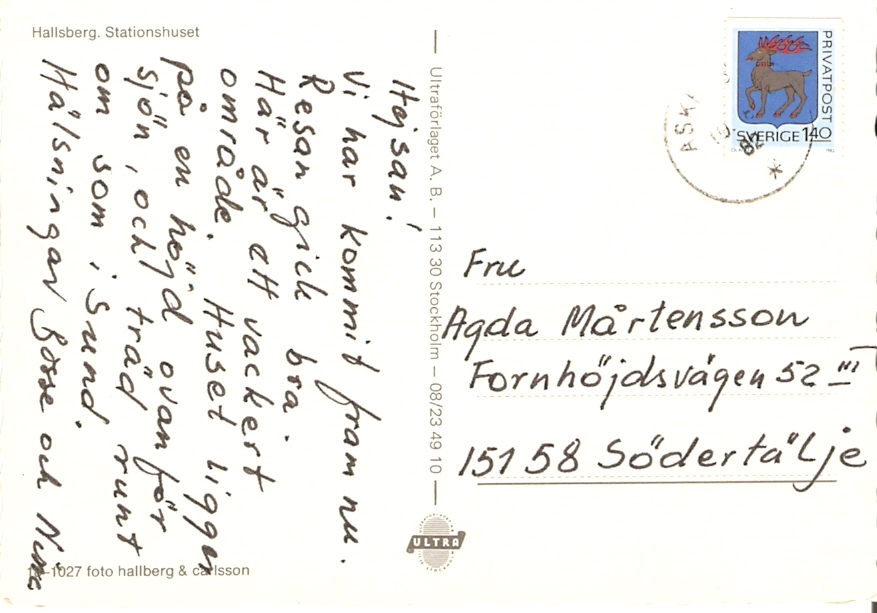 Hallsberg. Stationshuset
Hejsan!
Vi har kommit fram nu.
Resan gick bra.
Här är ett vackert
område. Huset ligger
på en höjd ovanför
sjön, och träd runt
om som i Sund.
Hälsningar Bosse och Nina
10-1027 foto hallberg & carlsson
Ultraförlaget A. B. – 113 30 Stockholm – 08/23 49 10
ULTRA
PRIVATPOST
SVERIGE 140
ASK
19
82
Fru
Agda Mårtensson
Fornhöjdsvägen 52 III
151 58 Södertälje